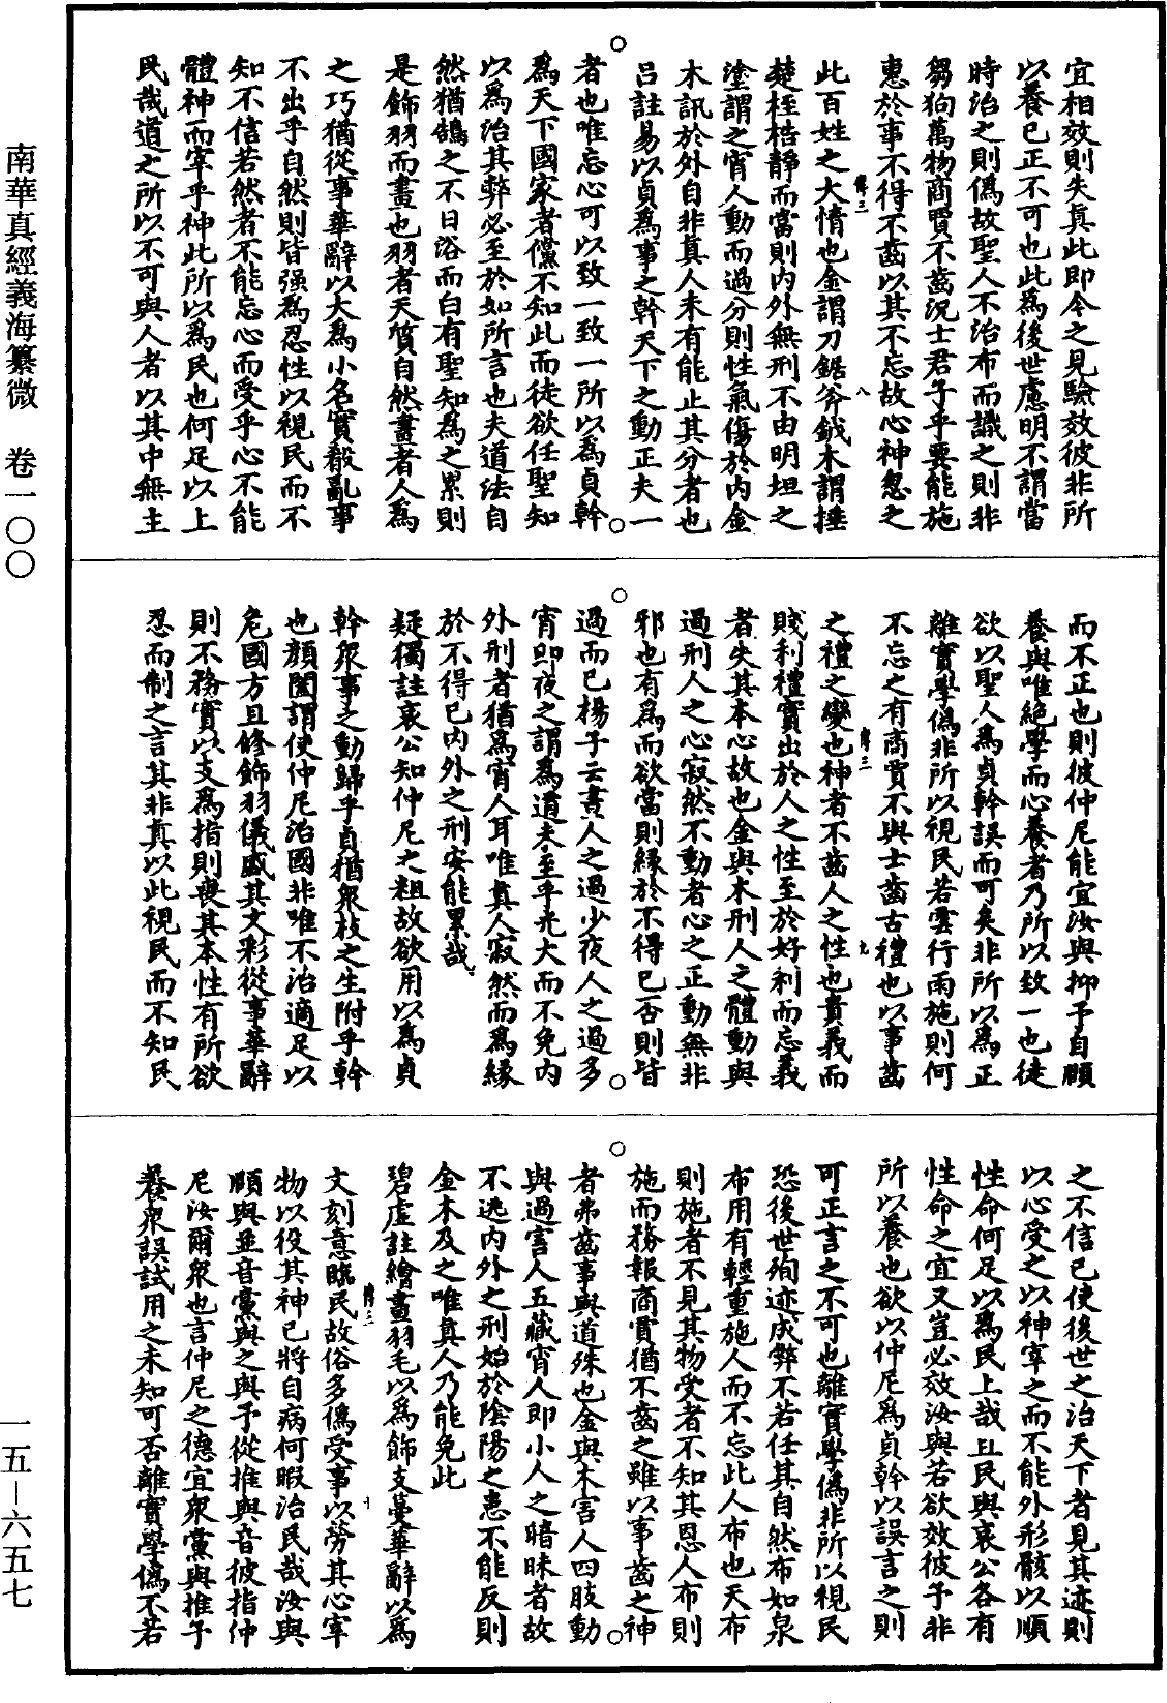 宜相效則失真此即今之見驗效彼非所
以養已正不可也此為後世慮明不謂當
時治之則偽故聖人不治布而識之則非
芻狗萬物商賈不齒況士君子乎要能施
惠於事不得不齒以其不忘故心神忽之
此百姓之大情也金謂刀鋸斧鉞木謂捶
楚桎梏靜而當則內外無刑不由明坦之
塗謂之宵人動而過分則性氣傷於內金
木訊於外自非真人未有能止其分者也
呂註易以貞為事之幹天下之動正夫一
者也唯忘心可以致一致一所以為貞幹
為天下國家者儻不知此而徒欲任聖知
以為治其弊必至於如所言也夫道法自
然猶鵠之不日浴而白有聖知為之累則
是飾羽而畫也羽者天質自然畫者人為
之巧猶從事華辭以大為小名實殽亂事
不出乎自然則皆强為忍性以視民而不
知不信若然者不能忘心而受乎心不能
體神而宰乎神此所以為民也何足以上
民哉道之所以不可與人者以其中無主
而不正也則彼仲尼能宜汝與抑予自頤
養與唯絕學而心養者乃所以致一也徒
欲以聖人為貞幹誤而可矣非所以為正
離實學偽非所以視民若雲行雨施則何
不忘之有商賈不與士齒古禮也以事齒
之禮之變也神者不齒人之性也貴義而
賤利禮實出於人之性至於好利而忘義
者失其本心故也金與木刑人之體動與
過刑人之心寂然不動者心之正動無非
邪也有為而欲當則緣於不得已否則皆
過而已楊子云晝人之過少夜人之過多
宵即夜之謂為道未至乎光大而不免內
外刑者猶為宵人耳唯真人寂然而為緣
於不得已內外之刑安能累哉
疑獨註哀公知仲尼之粗故欲用以為貞
幹眾事之動歸乎貞猶眾枝之生附乎幹
也顏闔謂使仲尼治國非唯不治適足以
危國方且修飾羽儀盛其文彩從事華辭
則不務實以支為指則喪其本性有所欲
忍而制之言其非真以此視民而不知民
之不信已使後世之治天下者見其迹則
以心受之以神宰之而不能外形骸以順
性命何足以為民上哉且民與哀公各有
性命之宜又豈必效汝與若欲效彼予非
所以養也欲以仲尼為貞幹以誤言之則
可正言之不可也離實學偽非所以視民
恐後世殉迹成弊不若任其自然布如泉
布用有輕重施人而不忘此人布也天布
則施者不見其物受者不知其恩人布則
施而務報商賈猶不齒之雖以事齒之神
者弗齒事與道殊也金與木害人四肢動
與過害人五藏宵人即小人之暗昧者故
不逃內外之刑始於陰陽之患不能反則
金木及之唯真人乃能免此
碧虛註繪畫羽毛以為飾支蔓華辭以為
文刻意臨民故俗多偽受事以勞其心宰
物以役其神已將自病何暇治民哉汝與
頤與並音黨與之與予從推與音彼指仲
尼汝爾眾也言仲尼之德宜眾黨與推予
養眾誤試用之未知可否離實學偽不若
南華真經義海纂微　卷一〇〇
一五－六五七